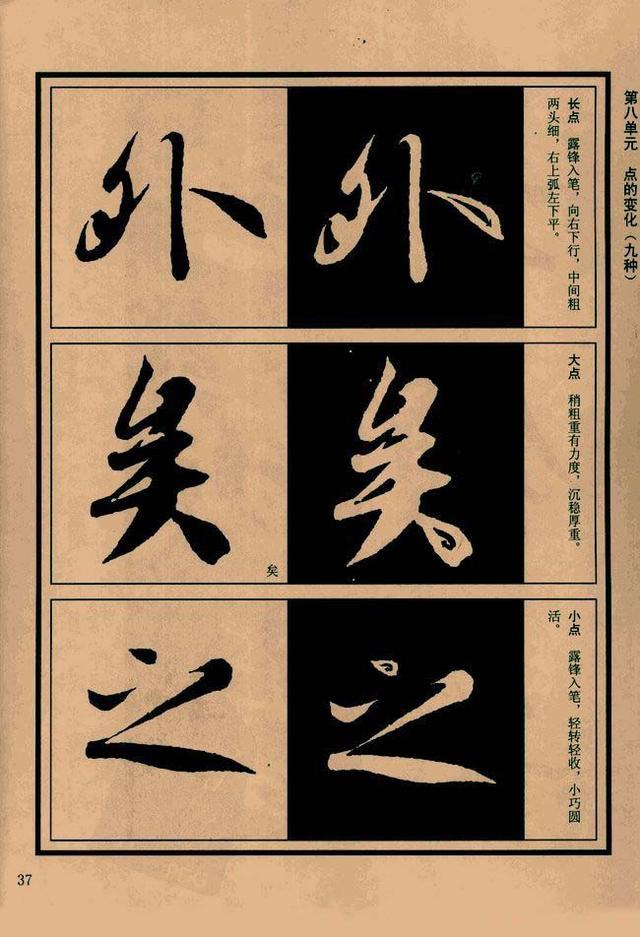 第八单元 点的变化（九种）
长点 露锋入笔，向右下行，中间粗
两头细，右上弧左下平。
外 外
大点 稍粗重有力度，沉稳厚重。
矣 矣
矣
小点 露锋入笔，轻转轻收，小巧圆
活。
之 之
37